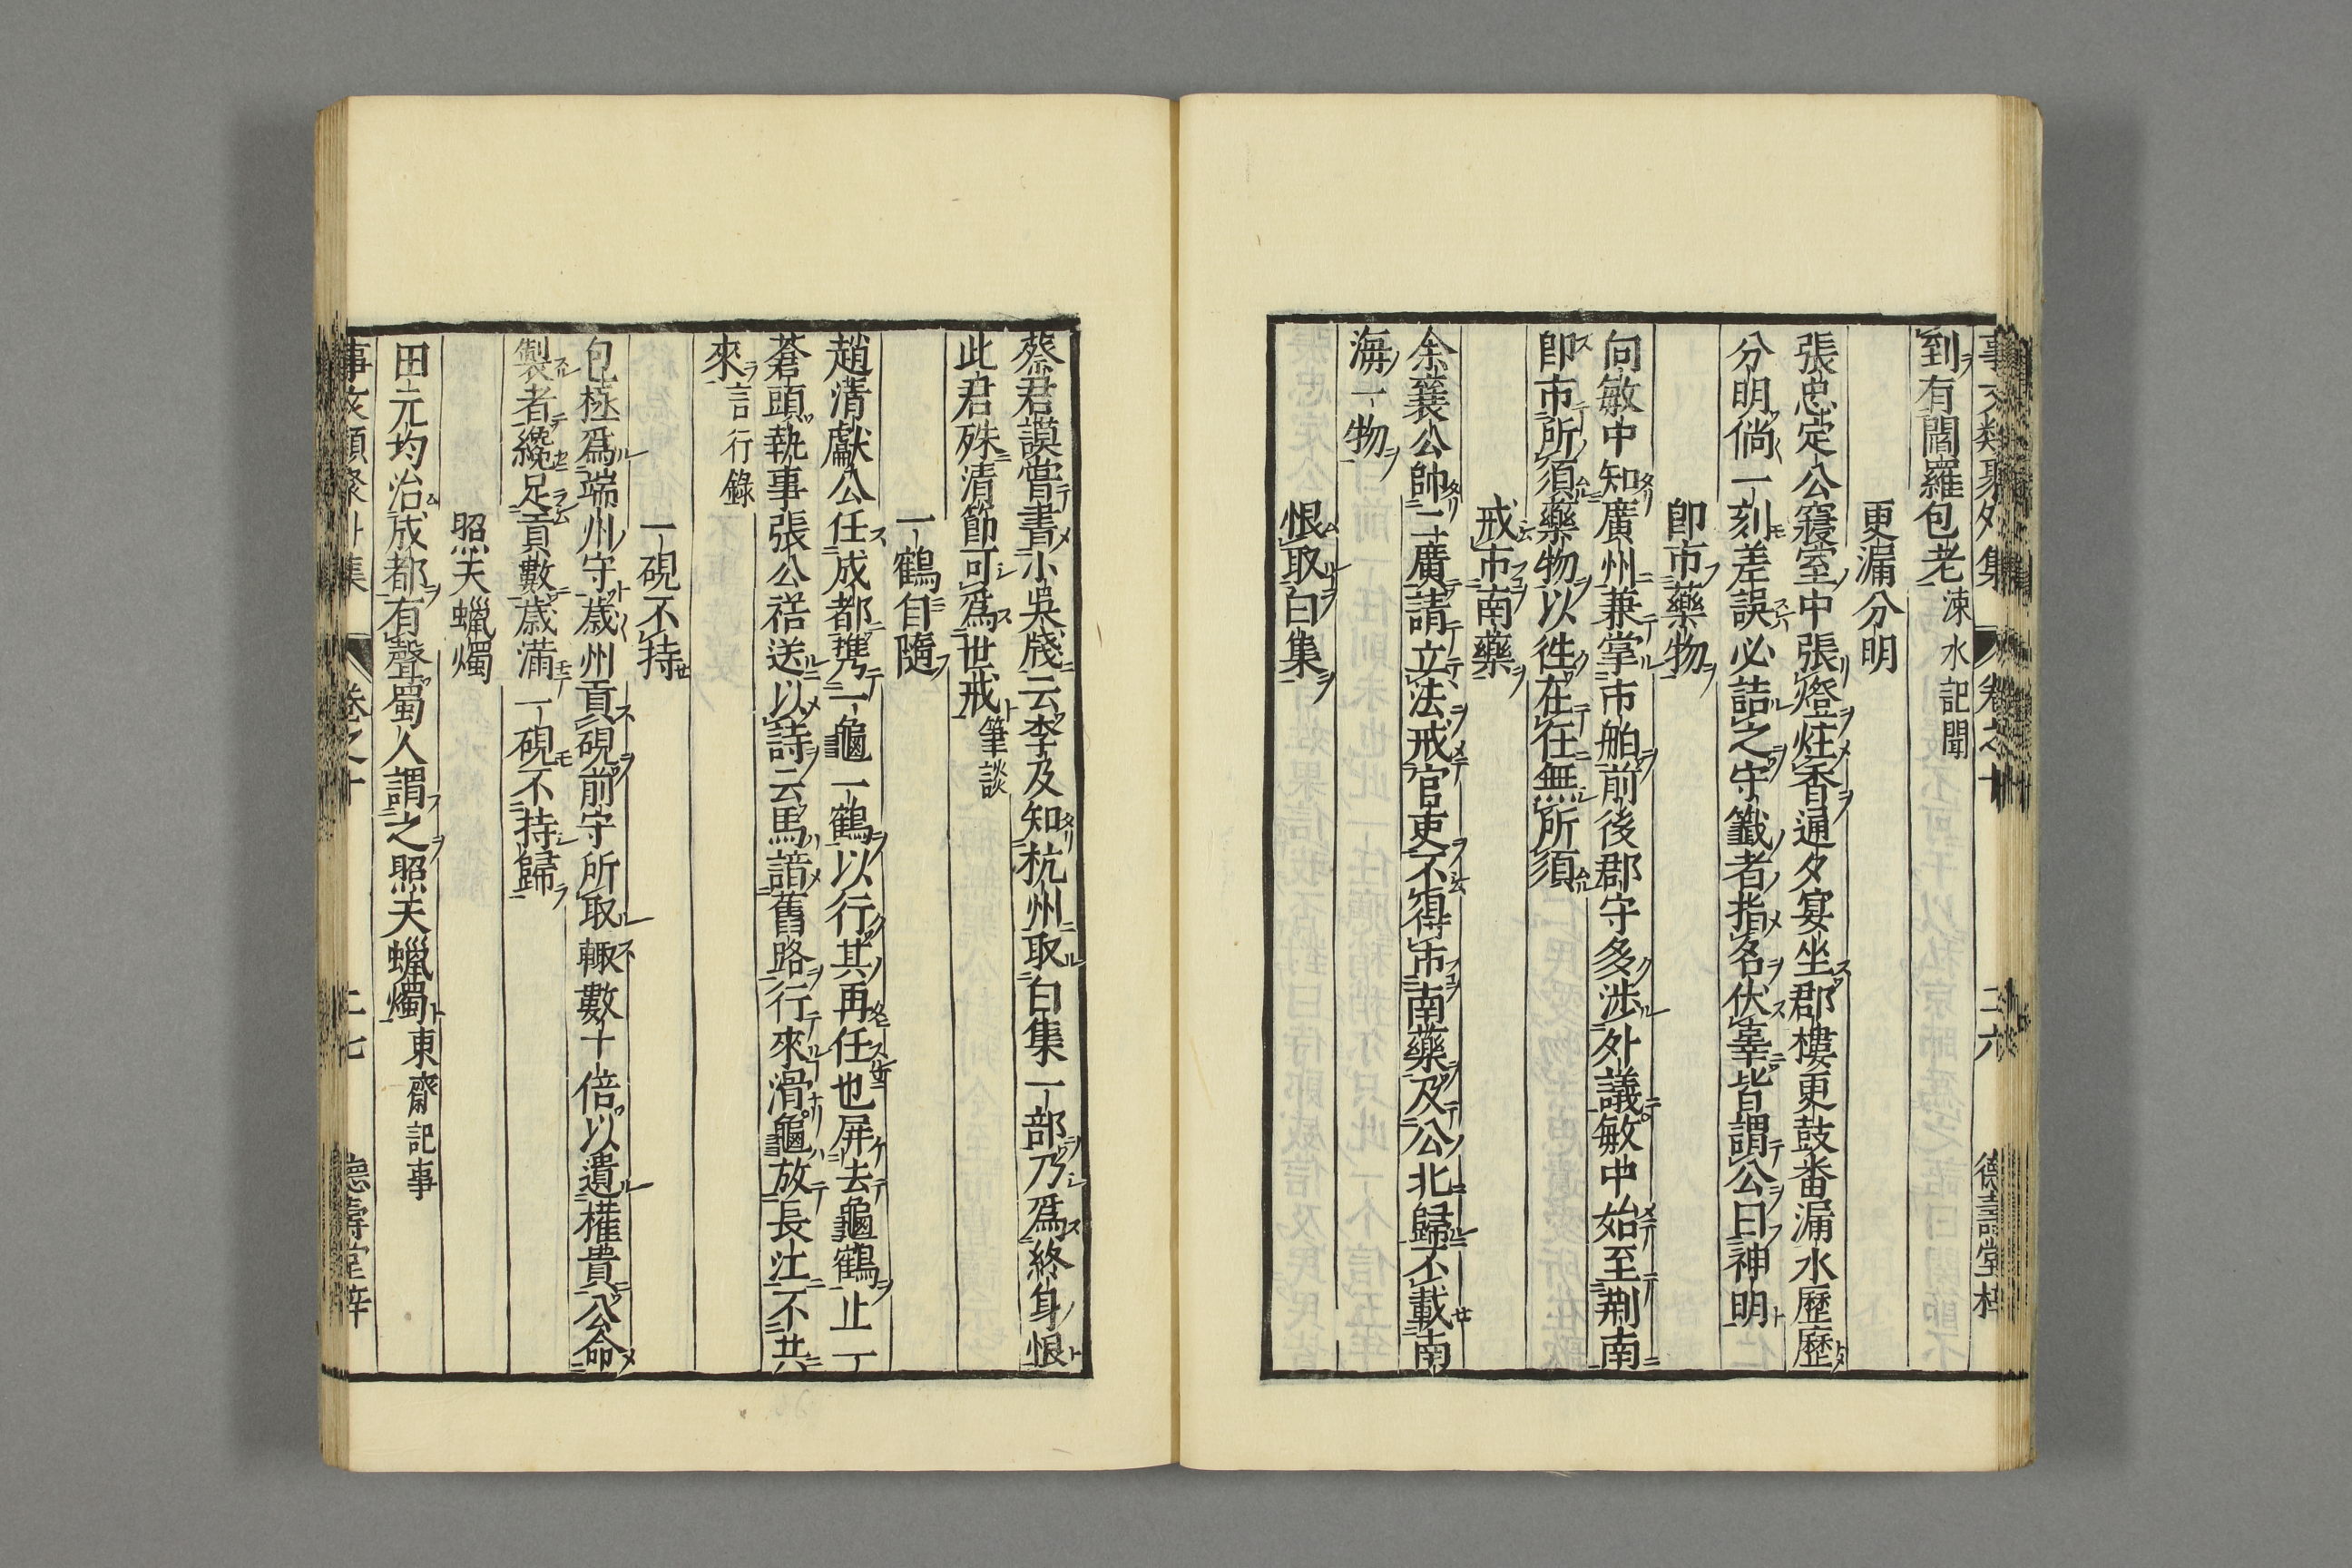 事文類聚外集 卷之十 二六 德壽堂梓
到有閻羅包老涑水記聞
更漏分明
張忠定公寢室中張燈炷香通夕宴坐郡樓更鼓番漏水歷歷
分明倘一刻差誤必詰之守籤者指名伏辜皆謂公曰神明
卽市藥物
向敏中知廣州兼掌市舶前後郡守多涉外議敏中始至荆南
卽市所須藥物以徃在任無所須
戒市南藥
余襄公帥二廣請立法戒官吏不得市南藥及公北歸不載南
海一物
恨取白集
蔡君謨嘗書小吳牋云李及知杭州取白集一部乃爲終身恨
此君殊清節可爲世戒筆談
一鶴自隨
趙清獻公任成都携一龜一鶴以行其再任也屏去龜鶴止一
蒼頭執事張公祹送以詩云馬諳舊路行來滑龜放長江不共
來言行錄
一硯不持
包極爲端州守歲州貢硯前守所取輙數十倍以遺權貴公命
製者纔足貢數歲滿一硯不持歸
照天蠟燭
田元均治成都有聲蜀人謂之照天蠟燭東齋記事
事文類聚外集 卷之十 二七 德壽堂梓